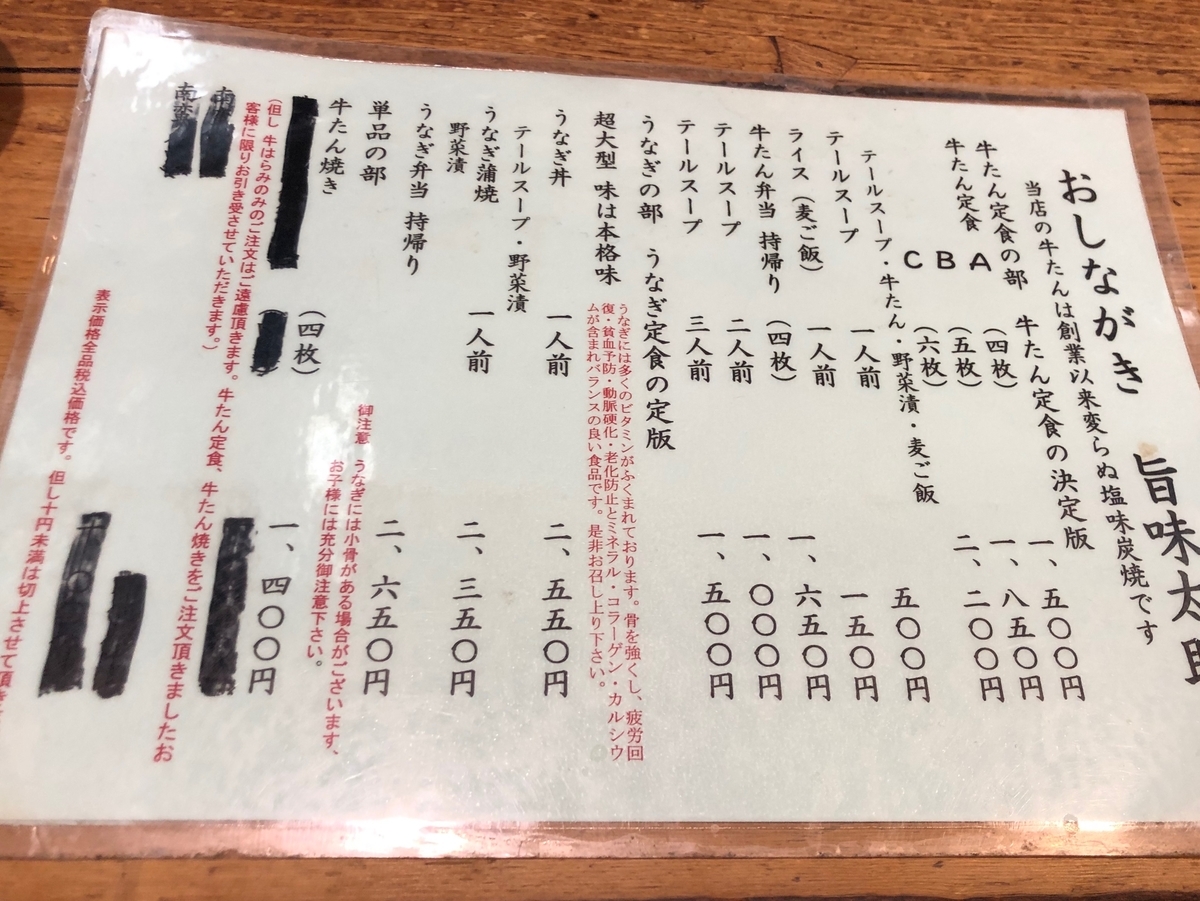 おしながき 旨味太助
当店の牛たんは創業以来変らぬ塩味炭焼です
牛たん定食の部 牛たん定食の決定版
牛たん定食 A (四枚) 一、五〇〇円
B (五枚) 一、八五〇円
C (六枚) 二、二〇〇円
テールスープ・牛たん・野菜漬・麦ご飯
テールスープ 一人前 五〇〇円
ライス(麦ご飯) 一人前 一五〇円
牛たん弁当 持帰り (四枚) 一、六五〇円
テールスープ 二人前 一、〇〇〇円
テールスープ 三人前 一、五〇〇円
うなぎの部 うなぎ定食の定版
うなぎには多くのビタミンがふくまれております。骨を強くし、疲労回
復・貧血予防・動脈硬化・老化防止とミネラル・コラーゲン・カルシウ
ムが含まれバランスの良い食品です。是非お召し上り下さい。
超大型 味は本格味
うなぎ丼 一人前 二、五五〇円
テールスープ・野菜漬
うなぎ蒲焼 一人前 二、三五〇円
野菜漬
うなぎ弁当 持帰り 二、六五〇円
御注意 うなぎには小骨がある場合がございます、
お子様には充分御注意下さい。
単品の部
牛たん焼き (四枚) 一、四〇〇円
(但し 牛はらみのみのご注文はご遠慮頂きます。牛たん定食、牛たん焼きをご注文頂きましたお
客様に限りお引き受させていただきます。)
南
南蛮
表示価格全品税込価格です。但し十円未満は切上させて頂き